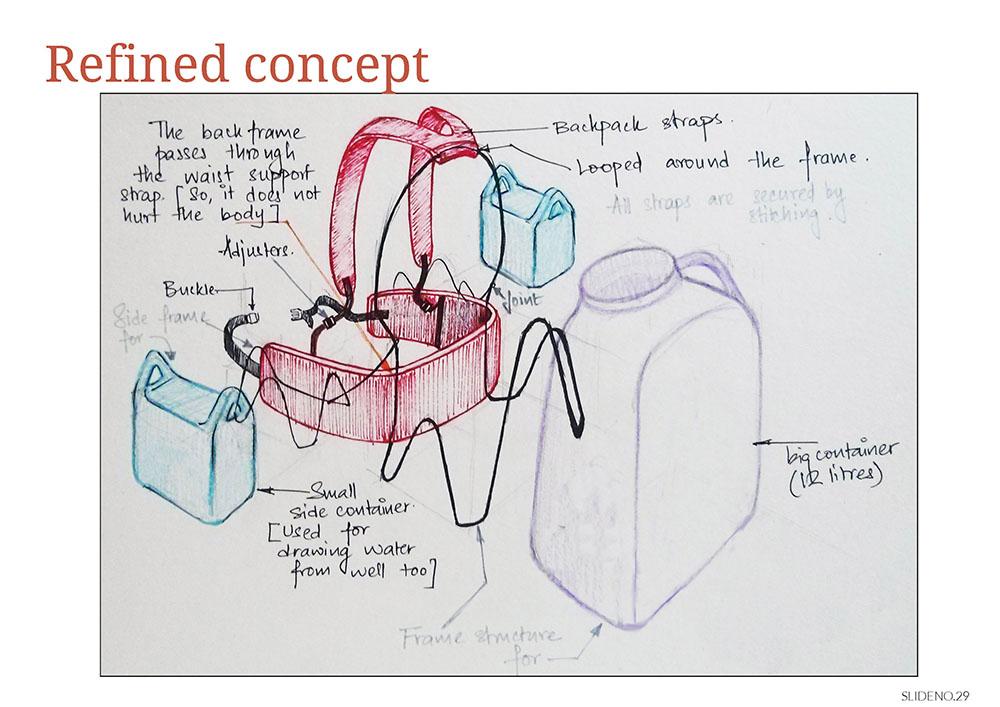 Refined concept
The back frame
passes through
the waist support
strap. [So, it does not
hurt the body]
Backpack straps.
Looped around the frame.
All straps are secured by
stitching.
Adjusters.
Buckle
Side frame
for
Joint
big container
(12 litres)
Small
side container.
[Used for
drawing water
from well too]
Frame structure
for
SLIDENO.29